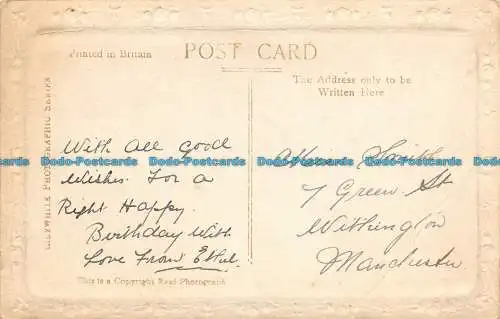 Printed in Britain
POST CARD
The Address only to be
Written Here
LILYWHITE PHOTOGRAPHIC SERIES
With All Good
Wishes For a
Right Happy
Birthday With
Love From Ethel.
Smith
7 Green St
Withington
Manchester
This is a Copyright Real Photograph
Dodo-Postcards Dodo-Postcards Dodo-Postcards Dodo-Postcards Dodo-Postcards